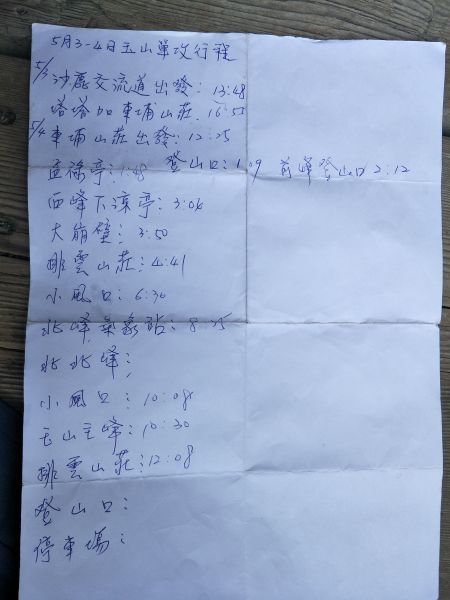 5月3-4日玉山單攻行程
5/3
沙鹿交流道出發：13:48
塔塔加東埔山莊：16:55
5/4東埔山莊出發：12:25
孟祿亭：1:48 登山口：1:09 前峰登山口2:12
西峰下涼亭：3:04
大崩壁：3:50
排雲山莊：4:41
小風口：6:30
北峰氣象站：8:25
北北峰：
小風口：10:08
玉山主峰：10:30
排雲山莊：12:08
登山口：
停車場：